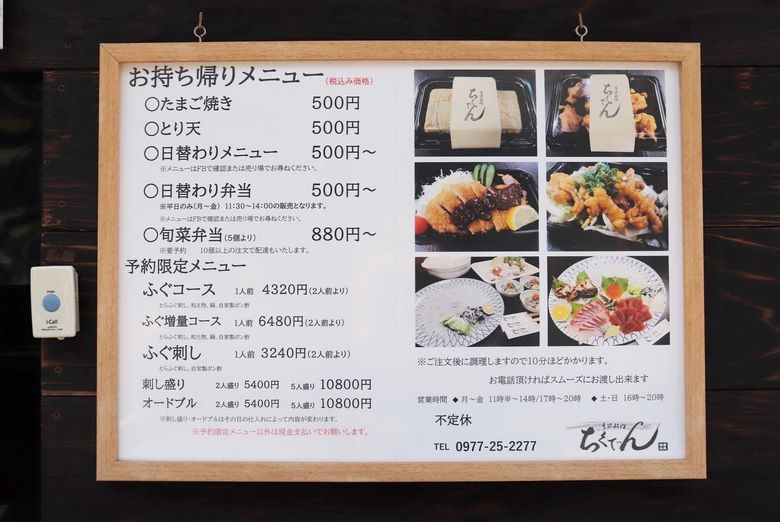 お持ち帰りメニュー(税込み価格)
○たまご焼き 500円
○とり天 500円
○日替わりメニュー 500円～
※メニューはFBで確認または売り場でお尋ねください。
○日替わり弁当 500円～
※平日のみ(月～金) 11:30～14:00の販売となります。
※メニューはFBで確認または売り場でお尋ねください。
○旬菜弁当(5個より) 880円～
※要予約 10個以上の注文で配達もいたします。
予約限定メニュー
ふぐコース 1人前 4320円(2人前より)
とらふぐ刺し、和え物、鍋、自家製ポン酢
ふぐ増量コース 1人前 6480円(2人前より)
とらふぐ刺し、和え物、鍋、自家製ポン酢
ふぐ刺し 1人前 3240円(2人前より)
とらふぐ刺し、自家製ポン酢
刺し盛り 2人盛り 5400円 5人盛り 10800円
オードブル 2人盛り 5400円 5人盛り 10800円
※刺し盛り・オードブルはその日の仕入れによって内容が変わります。
※予約限定メニュー以外は現金支払いでお願いします。
※ご注文後に調理しますので10分ほどかかります。
お電話頂ければスムーズにお渡し出来ます
営業時間 ◆月～金 11時半～14時/17時～20時 ◆土・日 16時～20時
不定休
TEL 0977-25-2277
ちくでん
PUSH
i-Call